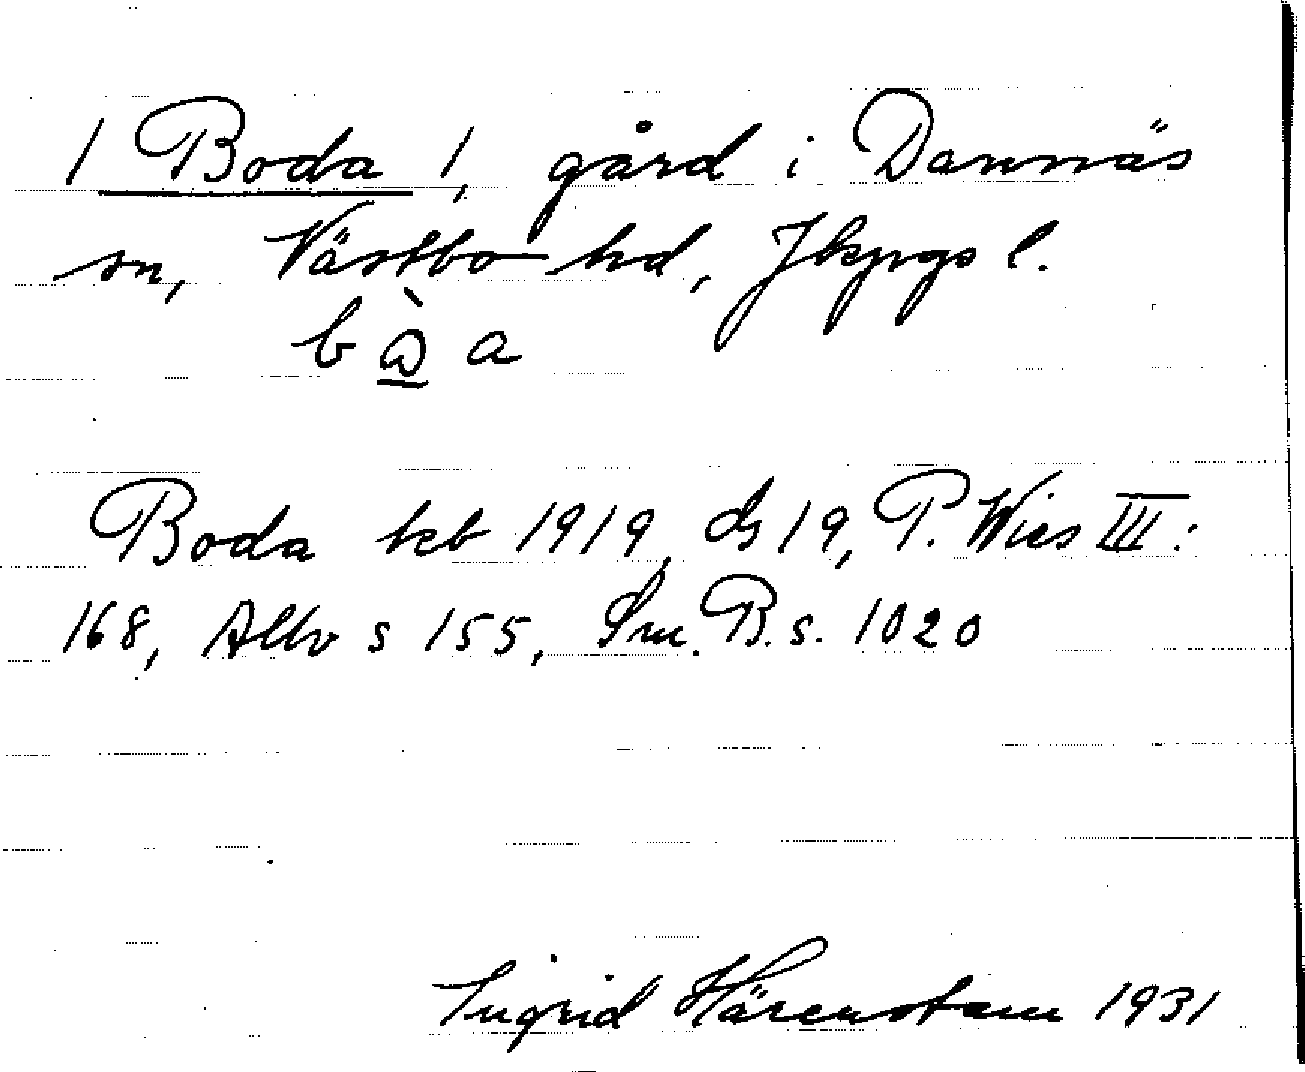 / Boda /, gård i Dannäs
sn, Västbo hd, Jkpgs l.
b a
Boda kb 1919, GS 19, P. Wies III:
168, Allbo s 155, Sm. B. s. 1020
Ingrid Härenstam 1931